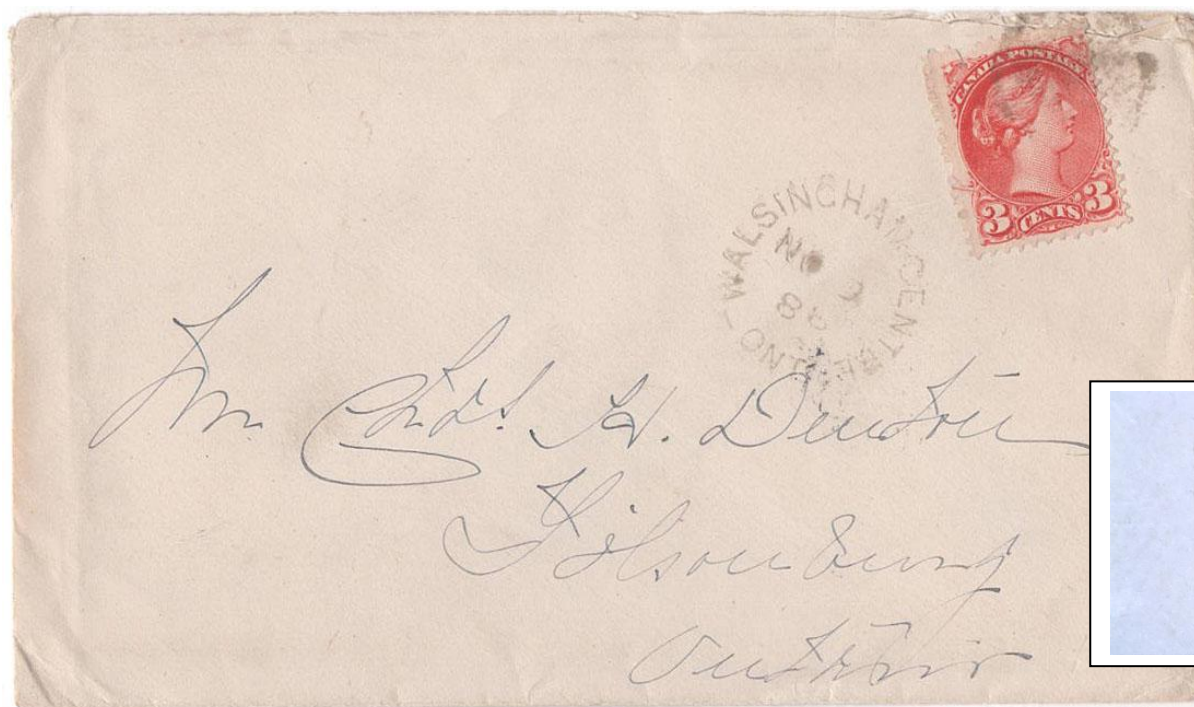 CANADA POSTAGE
3 CENTS 3
WALSINGHAM-CENTRE
NO 2
88
ONT
Chas. H. Denton
Tilsonburg
Ontario